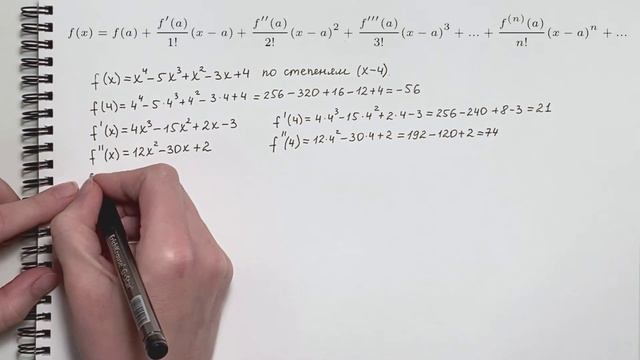 f(x) = f(a) + \frac{f'(a)}{1!}(x − a) + \frac{f''(a)}{2!}(x − a)^2 + \frac{f'''(a)}{3!}(x − a)^3 + ... + \frac{f^{(n)}(a)}{n!}(x − a)^n + ...
f(x) = x^4 − 5x^3 + x^2 − 3x + 4 по степеням (x−4)
f(4) = 4^4 − 5·4^3 + 4^2 − 3·4 + 4 = 256 − 320 + 16 − 12 + 4 = −56
f'(x) = 4x^3 − 15x^2 + 2x − 3 f'(4) = 4·4^3 − 15·4^2 + 2·4 − 3 = 256 − 240 + 8 − 3 = 21
f''(x) = 12x^2 − 30x + 2 f''(4) = 12·4^2 − 30·4 + 2 = 192 − 120 + 2 = 74